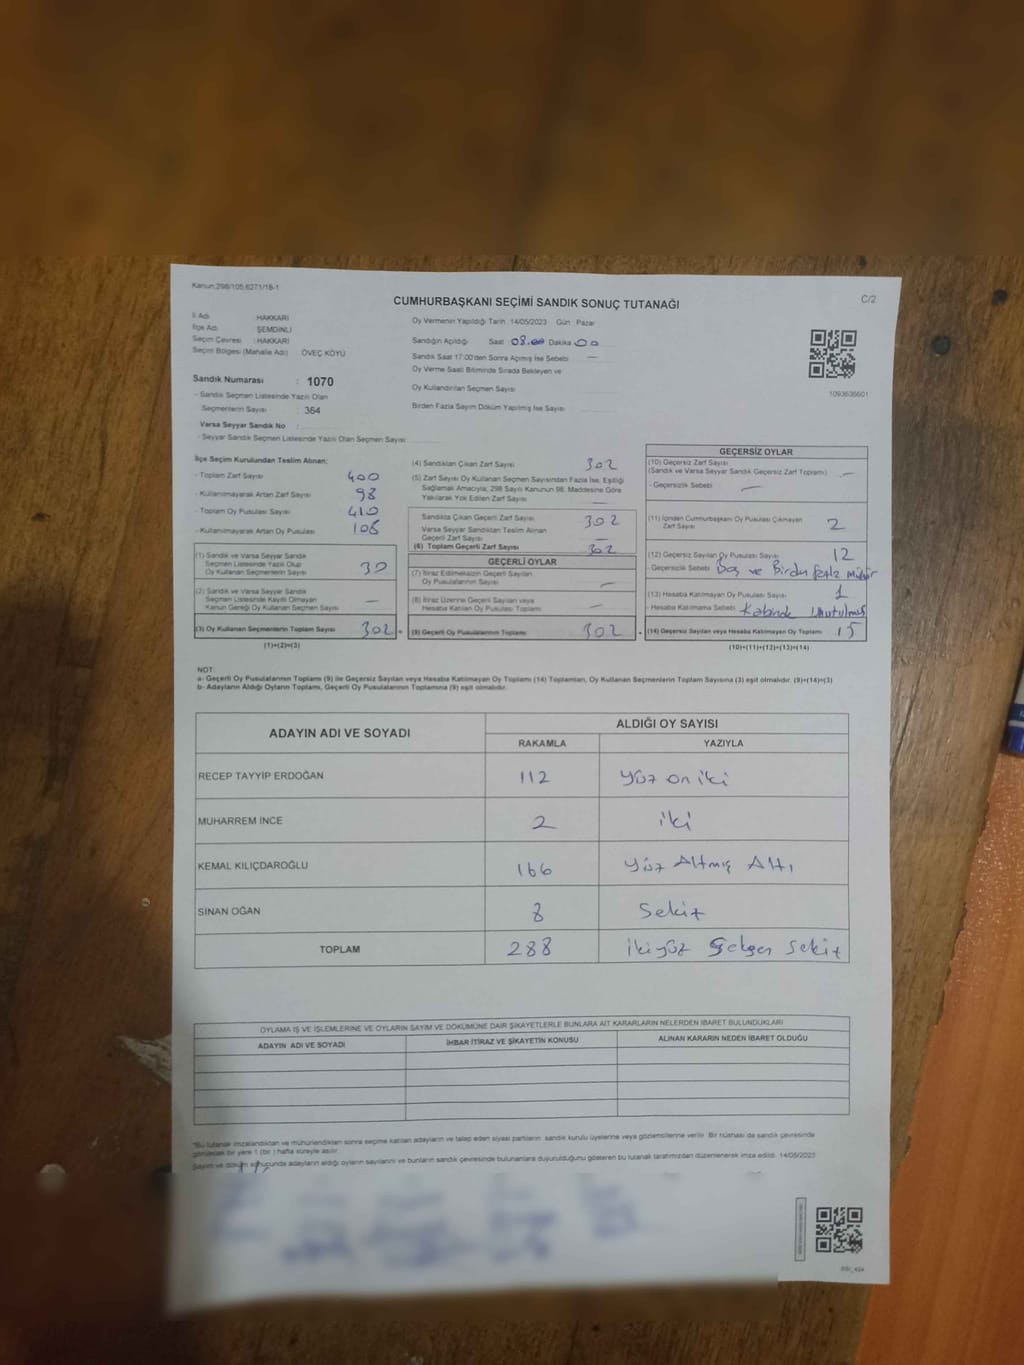 Kanun:298/105,6271/18-1
CUMHURBAŞKANI SEÇİMİ SANDIK SONUÇ TUTANAĞI
C/2
İl Adı : HAKKARİ
İlçe Adı : ŞEMDİNLİ
Seçim Çevresi : HAKKARİ
Seçim Bölgesi (Mahalle Adı) : ÖVEÇ KÖYÜ
Oy Vermenin Yapıldığı Tarih: 14/05/2023 Gün: Pazar
Sandığın Açıldığı Saat 08.00 Dakika 00
Sandık Saat 17:00'den Sonra Açılmış İse Sebebi —
Oy Verme Saati Bitiminde Sırada Bekleyen ve
Oy Kullandırılan Seçmen Sayısı
Birden Fazla Sayım Döküm Yapılmış İse Sayısı
1093636601
Sandık Numarası : 1070
- Sandık Seçmen Listesinde Yazılı Olan
Seçmenlerin Sayısı : 364
Varsa Seyyar Sandık No :
- Seyyar Sandık Seçmen Listesinde Yazılı Olan Seçmen Sayısı
İlçe Seçim Kurulundan Teslim Alınan:
- Toplam Zarf Sayısı 400
- Kullanılmayarak Artan Zarf Sayısı 98
- Toplam Oy Pusulası Sayısı 410
- Kullanılmayarak Artan Oy Pusulası
(1) Sandık ve Varsa Seyyar Sandık
Seçmen Listesinde Yazılı Olup
Oy Kullanan Seçmenlerin Sayısı 30
(2) Sandık ve Varsa Seyyar Sandık
Seçmen Listesinde Kayıtlı Olmayan
Kanun Gereği Oy Kullanan Seçmen Sayısı —
(3) Oy Kullanan Seçmenlerin Toplam Sayısı 302
(1)+(2)=(3)
(4) Sandıktan Çıkan Zarf Sayısı 302
(5) Zarf Sayısı Oy Kullanan Seçmen Sayısından Fazla İse, Eşitliği
Sağlamak Amacıyla; 298 Sayılı Kanunun 98. Maddesine Göre
Yakılarak Yok Edilen Zarf Sayısı —
Sandıkta Çıkan Geçerli Zarf Sayısı 302
Varsa Seyyar Sandıktan Teslim Alınan
Geçerli Zarf Sayısı —
(6) Toplam Geçerli Zarf Sayısı 302
GEÇERLİ OYLAR
(7) İtiraz Edilmeksizin Geçerli Sayılan
Oy Pusulalarının Sayısı —
(8) İtiraz Üzerine Geçerli Sayılan veya
Hesaba Katılan Oy Pusulaları Toplamı —
(9) Geçerli Oy Pusulalarının Toplamı 302
GEÇERSİZ OYLAR
(10) Geçersiz Zarf Sayısı
(Sandık ve Varsa Seyyar Sandık Geçersiz Zarf Toplamı) —
- Geçersizlik Sebebi —
(11) İçinden Cumhurbaşkanı Oy Pusulası Çıkmayan
Zarf Sayısı 2
(12) Geçersiz Sayılan Oy Pusulası Sayısı 12
- Geçersizlik Sebebi Boş ve Birden fazla mühür
(13) Hesaba Katılmayan Oy Pusulası Sayısı 1
- Hesaba Katılmama Sebebi Kabinde Unutulmuş
(14) Geçersiz Sayılan veya Hesaba Katılmayan Oy Toplamı 15
(10)+(11)+(12)+(13)=(14)
NOT:
a- Geçerli Oy Pusulalarının Toplamı (9) ile Geçersiz Sayılan veya Hesaba Katılmayan Oy Toplamı (14) Toplamları, Oy Kullanan Seçmenlerin Toplam Sayısına (3) eşit olmalıdır. (9)+(14)=(3)
b- Adayların Aldığı Oyların Toplamı, Geçerli Oy Pusulalarının Toplamına (9) eşit olmalıdır.
ADAYIN ADI VE SOYADI
ALDIĞI OY SAYISI
RAKAMLA YAZIYLA
RECEP TAYYİP ERDOĞAN 112 Yüz on iki
MUHARREM İNCE 2 iki
KEMAL KILIÇDAROĞLU 166 Yüz Altmış Altı
SİNAN OĞAN 8 Sekiz
TOPLAM 288 İkiyüz Seksen Sekiz
OYLAMA İŞ VE İŞLEMLERİNE VE OYLARIN SAYIM VE DÖKÜMÜNE DAİR ŞİKAYETLERLE BUNLARA AİT KARARLARIN NELERDEN İBARET BULUNDUKLARI
ADAYIN ADI VE SOYADI İHBAR İTİRAZ VE ŞİKAYETİN KONUSU ALINAN KARARIN NEDEN İBARET OLDUĞU
"Bu tutanak imzalandıktan ve mühürlendikten sonra seçime katılan adayların ve talep eden siyasi partilerin sandık kurulu üyelerine veya gözlemcilerine verilir. Bir nüshası da sandık çevresinde
görülecek bir yere 1 (bir) hafta süreyle asılır.
Sayım ve döküm sonucunda adayların aldığı oyların sayılarını ve bunların sandık çevresinde bulunanlara duyurulduğunu gösteren bu tutanak tarafımızdan düzenlenerek imza edildi. 14/05/2023